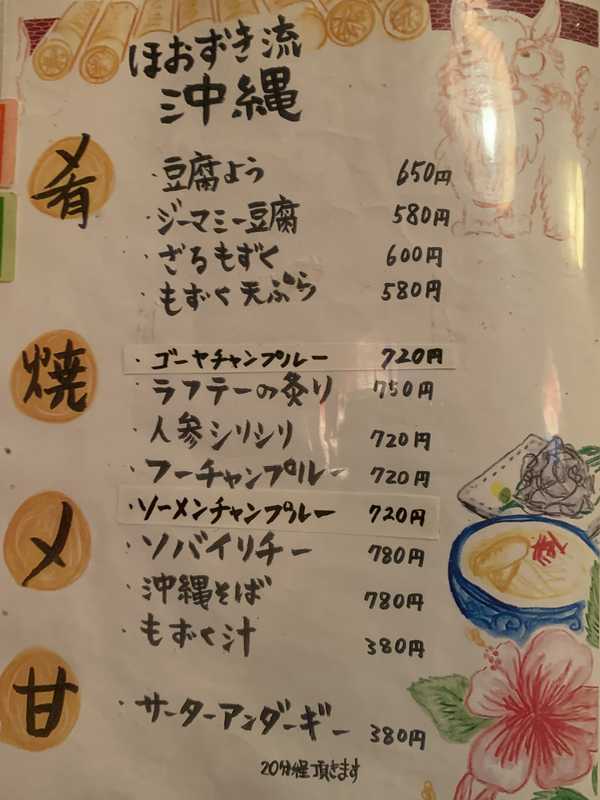 ほおずき流
沖縄
肴
・豆腐よう 650円
・ジーマミー豆腐 580円
・ざるもずく 600円
・もずく天ぷら 580円
焼
・ゴーヤチャンプルー 720円
・ラフテーの炙り 750円
・人参シリシリ 720円
・フーチャンプルー 720円
・ソーメンチャンプルー 720円
〆
・ソバイリチー 780円
・沖縄そば 780円
・もずく汁 380円
甘
・サーターアンダーギー 380円
20分程頂きます